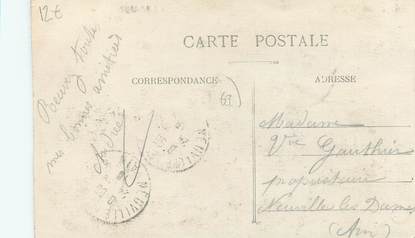 12€
CARTE POSTALE
CORRESPONDANCE
ADRESSE
69
Recevez toute
mes bonnes amitiés
Madame
Vve Gauthier
propriétaire
Neuville les Dames
(Ain)
NEUVILLE